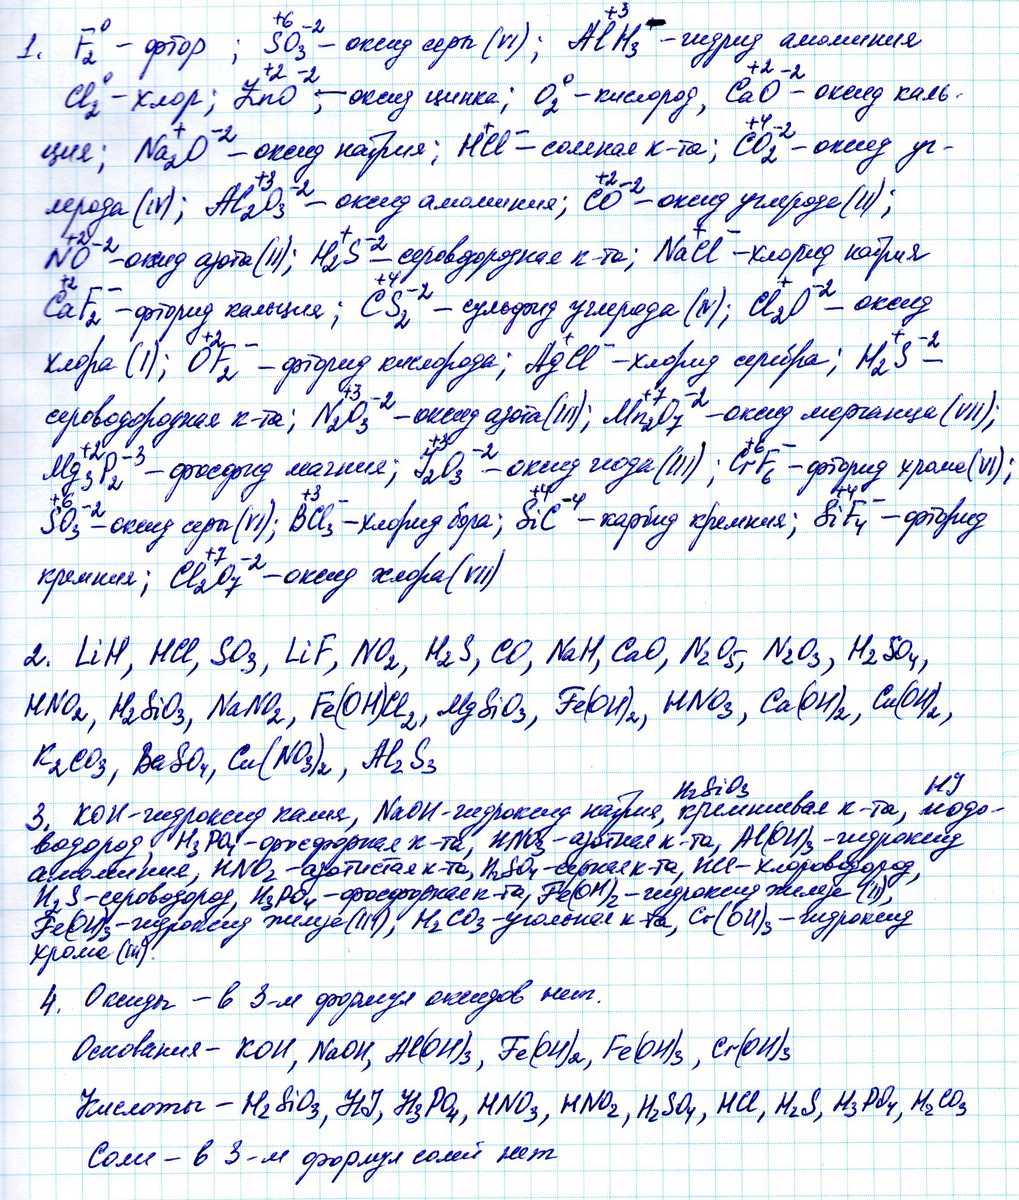 1. F₂⁰ – фтор ; S⁺⁶O₃⁻² – оксид серы (VI) ; Al⁺³H₃⁻ – гидрид алюминия
Cl₂⁰ – хлор; Zn⁺²O⁻² ; – оксид цинка; O₂⁰ – кислород, Ca⁺²O⁻² – оксид каль-
ция; Na₂⁺O⁻² – оксид натрия; H⁺Cl⁻ – соляная к-та; C⁺⁴O₂⁻² – оксид уг-
лерода (IV); Al₂⁺³O₃⁻² – оксид алюминия; C⁺²O⁻² – оксид углерода (II);
N⁺²O⁻² – оксид азота (II); H₂⁺S⁻² – сероводородная к-та; Na⁺Cl⁻ – хлорид натрия
Ca⁺²F₂⁻ – фторид кальция; C⁺⁴S₂⁻² – сульфид углерода (IV); Cl₂⁺O⁻² – оксид
хлора (I); O⁺²F₂⁻ – фторид кислорода; Ag⁺Cl⁻ – хлорид серебра; H₂⁺S⁻² –
сероводородная к-та; N₂⁺³O₃⁻² – оксид азота (III); Mn₂⁺⁷O₇⁻² – оксид марганца (VII);
Mg₃⁺²P₂⁻³ – фосфид магния; J₂⁺³O₃⁻² – оксид иода (III) ; Cr⁺⁶F₆⁻ – фторид хрома (VI);
S⁺⁶O₃⁻² – оксид серы (VI); B⁺³Cl₃⁻ – хлорид бора; Si⁺⁴C⁻⁴ – карбид кремния; Si⁺⁴F₄⁻ – фторид
кремния; Cl₂⁺⁷O₇⁻² – оксид хлора (VII)
2. LiH, HCl, SO₃, LiF, NO₂, H₂S, CO, NaH, CaO, N₂O₅, N₂O₃, H₂SO₄,
HNO₂, H₂SiO₃, NaNO₂, Fe(OH)Cl₂, MgSiO₃, Fe(OH)₂, HNO₃, Ca(OH)₂, Cu(OH)₂,
K₂CO₃, BaSO₄, Cu(NO₃)₂, Al₂S₃
H₂SiO₃ HJ
3. KOH – гидроксид калия, NaOH – гидроксид натрия, кремниевая к-та, иодо-
водород, H₃PO₄ – фосфорная к-та, HNO₃ – азотная к-та, Al(OH)₃ – гидроксид
алюминия, HNO₂ – азотистая к-та, H₂SO₄ – серная к-та, HCl – хлороводород,
H₂S – сероводород, H₃PO₄ – фосфорная к-та, Fe(OH)₂ – гидроксид железа (II),
Fe(OH)₃ – гидроксид железа (III), H₂CO₃ – угольная к-та, Cr(OH)₃ – гидроксид
хрома (III).
4. Оксиды – в 3-м формул оксидов нет.
Основания – KOH, NaOH, Al(OH)₃, Fe(OH)₂, Fe(OH)₃, Cr(OH)₃
Кислоты – H₂SiO₃, HJ, H₃PO₄, HNO₃, HNO₂, H₂SO₄, HCl, H₂S, H₃PO₄, H₂CO₃
Соли – в 3-м формул солей нет